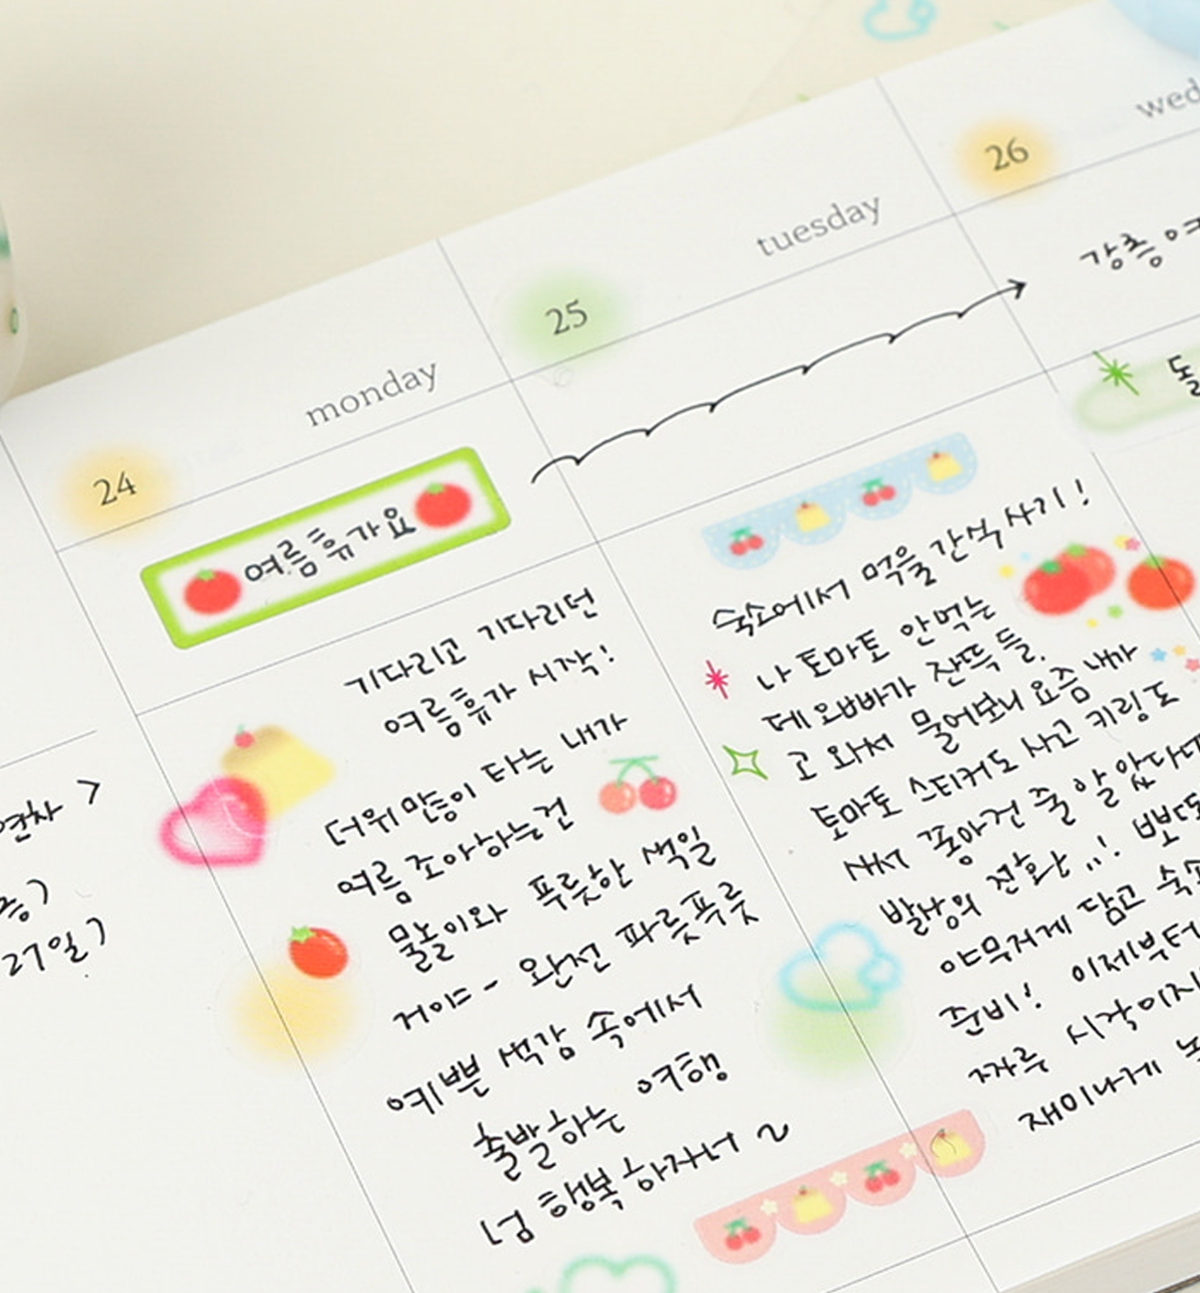 연차 >
27일)
24
monday
여름휴가요
기다리고 기다리던
여름휴가 시작!
더위많이 타는 내가
여름 좋아하는건
물놀이와 푸릇한 색일
거야- 완전 파릇푸릇
예쁜 색감 속에서
출발하는 여행
넘 행복하자너 ~
25
tuesday
숙소에서 먹을 간식 사기!
나 토마토 안먹는
데 오빠가 잔뜩 들.
고 와서 물어보니 요즘 내가
토마토 스티커도 사고 키링도
사서 좋아건 줄 알았다
발상의 전환 ,,!
야무지게 담고
준비! 이제부터
시작이지
재미나게
26
강릉